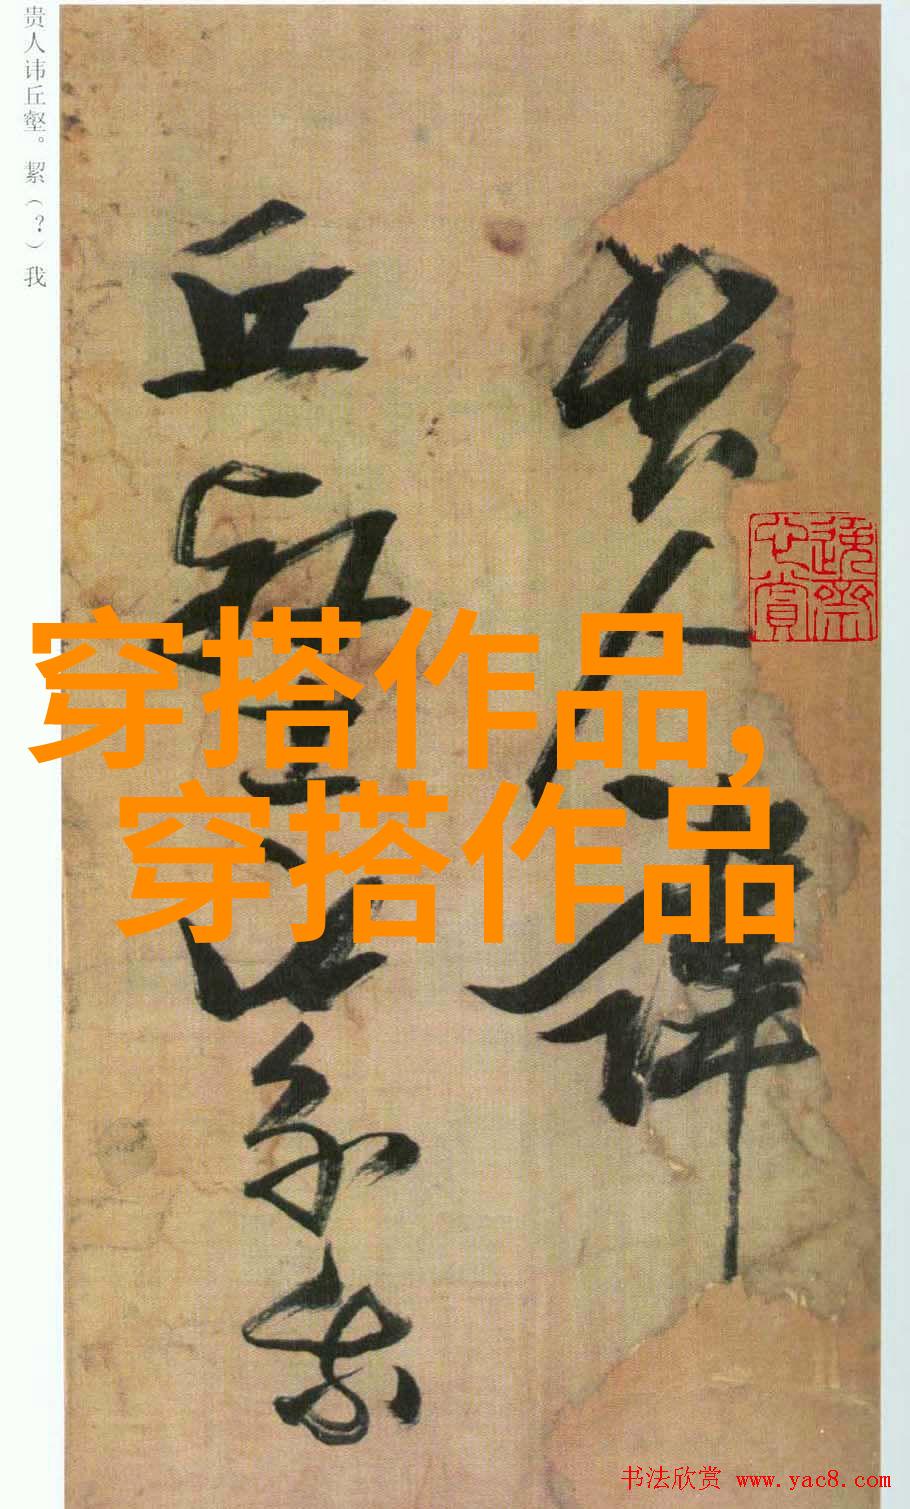 贵人讳丘壑。絜（？）我
貴人諱
丘壑絜我
穿搭作品，
穿搭作品
书法欣赏 www.yac8.com